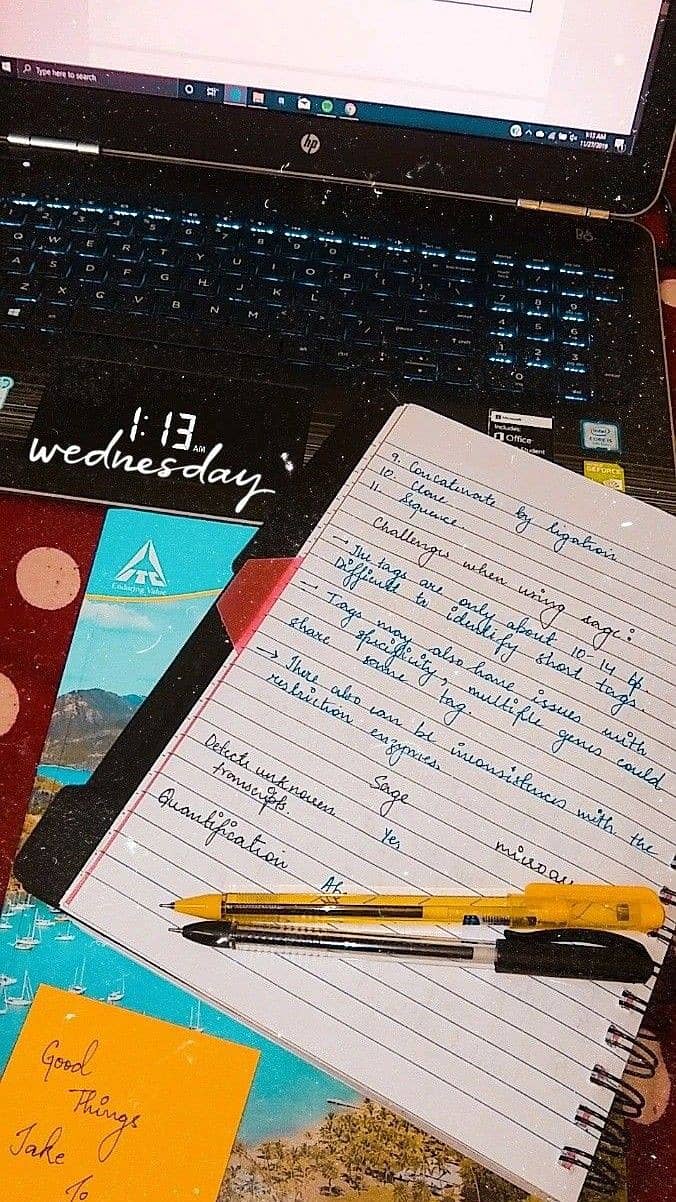 Type here to search
1:13 AM
11/27/2019
hp
1:13 AM
wednesday
Microsoft
Includes:
Office
Student
intel
CORE i5
GEFORCE
ITC
Enduring Value
9. Concatenate by ligation
10. Clone
11. Sequence.
Challenges when using sage:
→ The tags are only about 10-14 bp.
Difficult to identify short tags.
→ Tags may also have issues with
share specificity, multiple genes could
same tag.
→ There also can be inconsistences with the
restriction enzymes.
Sage
microar
Detects unknown
transcripts.
Yes
Quantification
Ab
Good
Things
Take
To